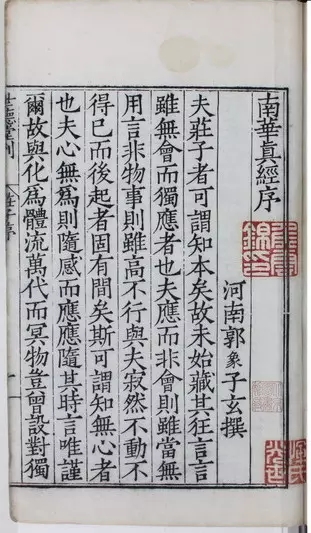 南華真經序
河南郭象子玄撰
夫莊子者可謂知本矣故未始藏其狂言言
雖無會而獨應者也夫應而非會則雖當無
用言非物事則雖高不行與夫寂然不動不
得已而後起者固有間矣斯可謂知無心者
也夫心無為則隨感而應應隨其時言唯謹
爾故與化為體流萬代而冥物豈曾設對獨
世德堂刊
莊子序